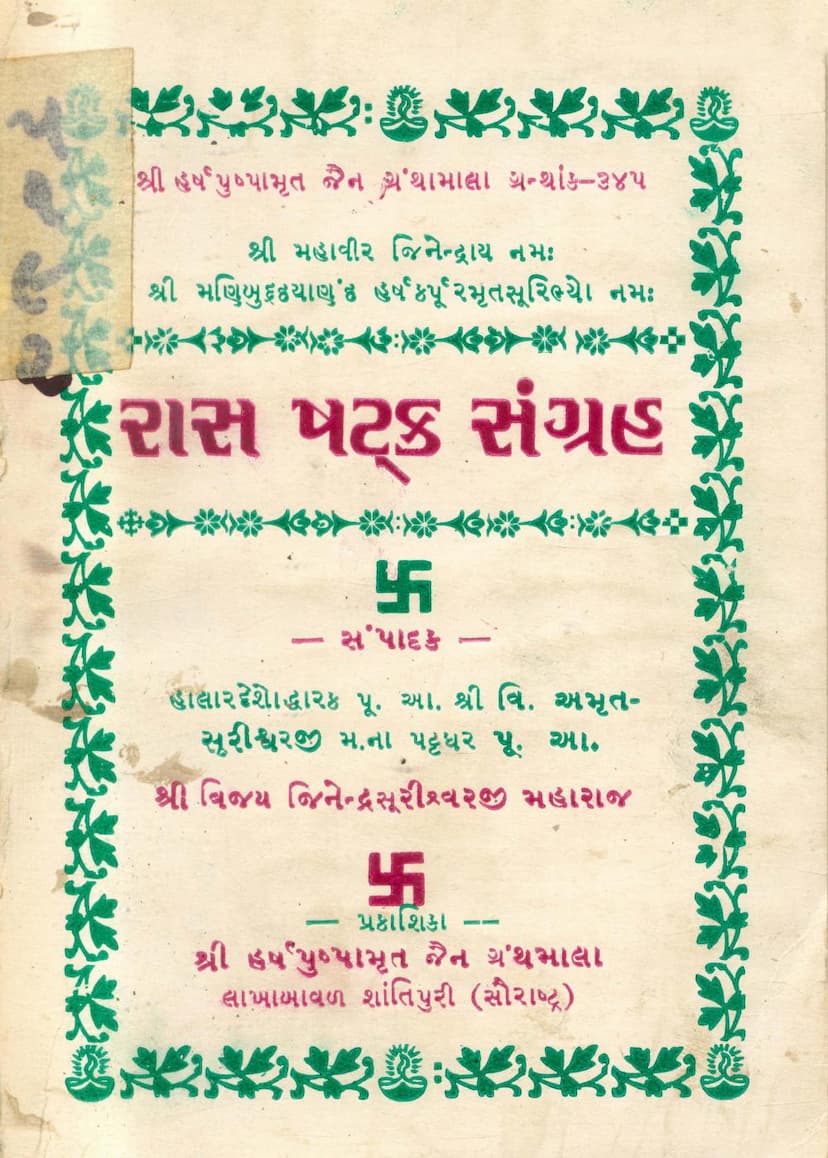 શ્રી હર્ષપુષ્પામૃત જૈન ગ્રંથામાલા ગ્રન્થાંક-૩૪૫
શ્રી મહાવીર જિનેન્દ્રાય નમઃ
શ્રી મણિબુદ્ધયાણંદ હર્ષકર્પૂરમૃતસૂરિભ્યો નમઃ
રાસ ષટ્ક સંગ્રહ
— સંપાદક —
હાલારદેશોદ્ધારક પૂ. આ. શ્રી વિ. અમૃત-
સૂરીશ્વરજી મ.ના પટ્ટધર પૂ. આ.
શ્રી વિજય જિનેન્દ્રસૂરીશ્વરજી મહારાજ
— પ્રકાશિકા —
શ્રી હર્ષપુષ્પામૃત જૈન ગ્રંથમાલા
લાખાબાવળ શાંતિપુરી (સૌરાષ્ટ્ર)